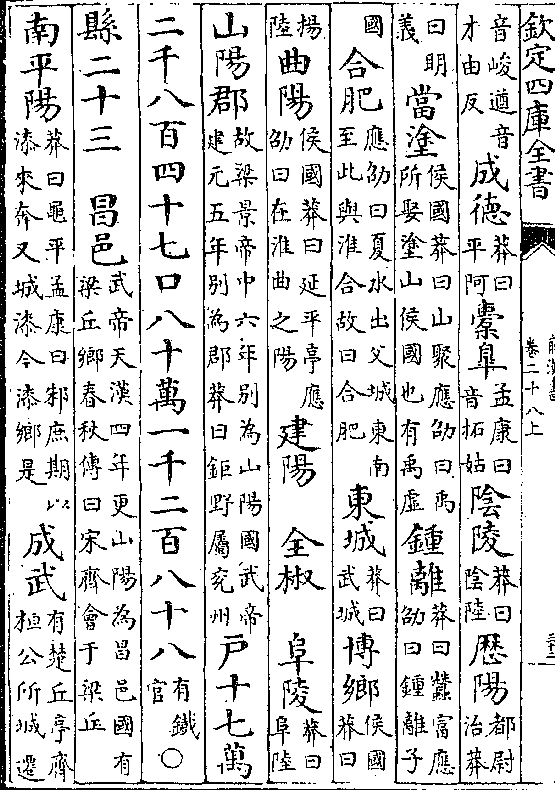 欽定四庫全書
卷二十八上
音峻遒音才由反 成德莽曰平阿 橐臯孟康曰音拓姑 陰陵莽曰陰陸 歷陽都尉治莽
曰明義 當塗侯國莽曰山聚應劭曰禹所娶塗山侯國也有禹虛 鍾離莽曰蠶富應劭曰鍾離子
國 合肥應劭曰夏水出父城東南至此與淮合故曰合肥 東城莽曰武城 博鄉侯國莽曰
揚陸 曲陽侯國莽曰延平亭應劭曰在淮曲之陽 建陽 全椒 阜陵莽曰阜陸
山陽郡故梁景帝中六年别為山陽國武帝建元五年别為郡莽曰鉅野屬兖州 戸十七萬
二千八百四十七口八十萬一千二百八十八有鐵官 ○
縣二十三 昌邑武帝天漢四年更山陽為昌邑國有梁丘鄉春秋傳曰宋齊會于梁丘
南平陽莽曰黽平孟康曰邾庶期以漆來奔又城漆今漆鄉是 成武有楚丘亭齊桓公所城遷